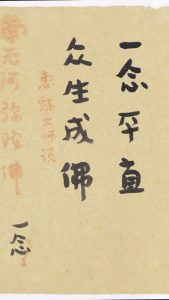 一念平直
众生成佛
惠能大师说
南无阿弥陀佛
一念